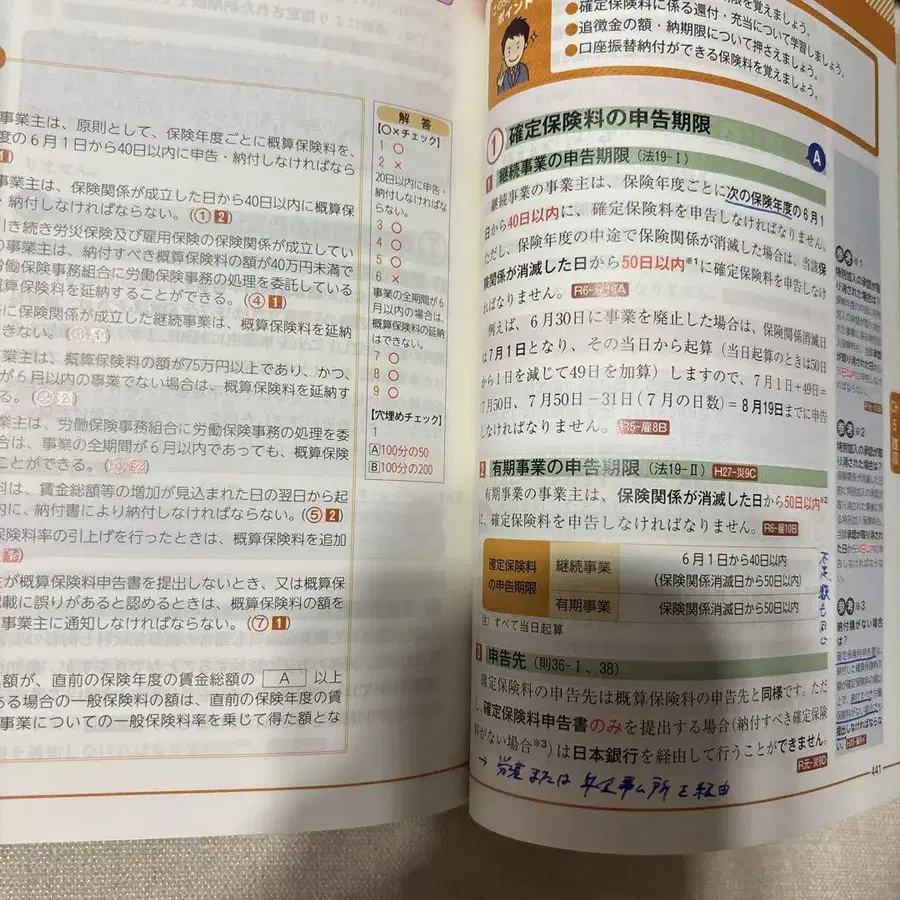 事業主は、原則として、保険年度ごとに概算保険料を、
度の6月1日から40日以内に申告・納付しなければなら
1
事業主は、保険関係が成立した日から40日以内に概算保
・納付しなければならない。(①2)
引き続き労災保険及び雇用保険の保険関係が成立してい
の事業主は、納付すべき概算保険料の額が40万円未満で
労働保険事務組合に労働保険事務の処理を委託している
算保険料を延納することができる。(④1)
に保険関係が成立した継続事業は、概算保険料を延納
きない。
業主は、概算保険料の額が75万円以上であり、かつ、
が6月以内の事業でない場合は、概算保険料を延納す
る。
業主は、労働保険事務組合に労働保険事務の処理を委
合は、事業の全期間が6月以内であっても、概算保険
ことができる。
料は、賃金総額等の増加が見込まれた日の翌日から起
内に、納付書により納付しなければならない。(⑤2)
保険料率の引上げを行ったときは、概算保険料を追加
が概算保険料申告書を提出しないとき、又は概算保
記載に誤りがあると認めるときは、概算保険料の額を
事業主に通知しなければならない。(⑦1)
総額が、直前の保険年度の賃金総額の A 以上
ある場合の一般保険料の額は、直前の保険年度の賃
事業についての一般保険料率を乗じて得た額とな
解答
【○×チェック】
1 ○
2 ×
20日以内に申告・
納付しなければな
らない。
3 ○
4 ○
5 ○
6 ×
事業の全期間が6
月以内の場合は、
概算保険料の延納
はできない。
7 ○
8 ○
9 ○
【穴埋めチェック】
1
A 100分の50
B 100分の200
ポイント
限を覚えましょう。
●確定保険料に係る還付・充当について学習しましょう。
●追徴金の額・納期限について押さえましょう。
●口座振替納付ができる保険料を覚えましょう。
① 確定保険料の申告期限
A
1 継続事業の申告期限(法19-Ⅰ)
継続事業の事業主は、保険年度ごとに次の保険年度の6月1
日から40日以内に、確定保険料を申告しなければなりません。
ただし、保険年度の中途で保険関係が消滅した場合は、当該保
険関係が消滅した日から50日以内※1に確定保険料を申告しなけ
ればなりません。
例えば、6月30日に事業を廃止した場合は、保険関係消滅日
は7月1日となり、その当日から起算(当日起算のときは50日
から1日を減じて49日を加算)しますので、7月1日+49日=
7月50日、7月50日-31日(7月の日数)=8月19日までに申告
しなければなりません。 R5-雇8B
2 有期事業の申告期限(法19-Ⅱ) H27-災9C
有期事業の事業主は、保険関係が消滅した日から50日以内※2
に、確定保険料を申告しなければなりません。 R6-雇10B
確定保険料
の申告期限
継続事業
6月1日から40日以内
(保険関係消滅日から50日以内)
有期事業
保険関係消滅日から50日以内
注)すべて当日起算
不足額も同じ
3 申告先(則36-Ⅰ、38)
確定保険料の申告先は概算保険料の申告先と同様です。ただ
し、確定保険料申告書のみを提出する場合(納付すべき確定保険
料がない場合※3)は日本銀行を経由して行うことができません。
R元-災9D
→ 労基または年金事ム所を経由
参考 ※1
参考 ※2
参考 ※3
納付額がない場合
は?
CH
5
441